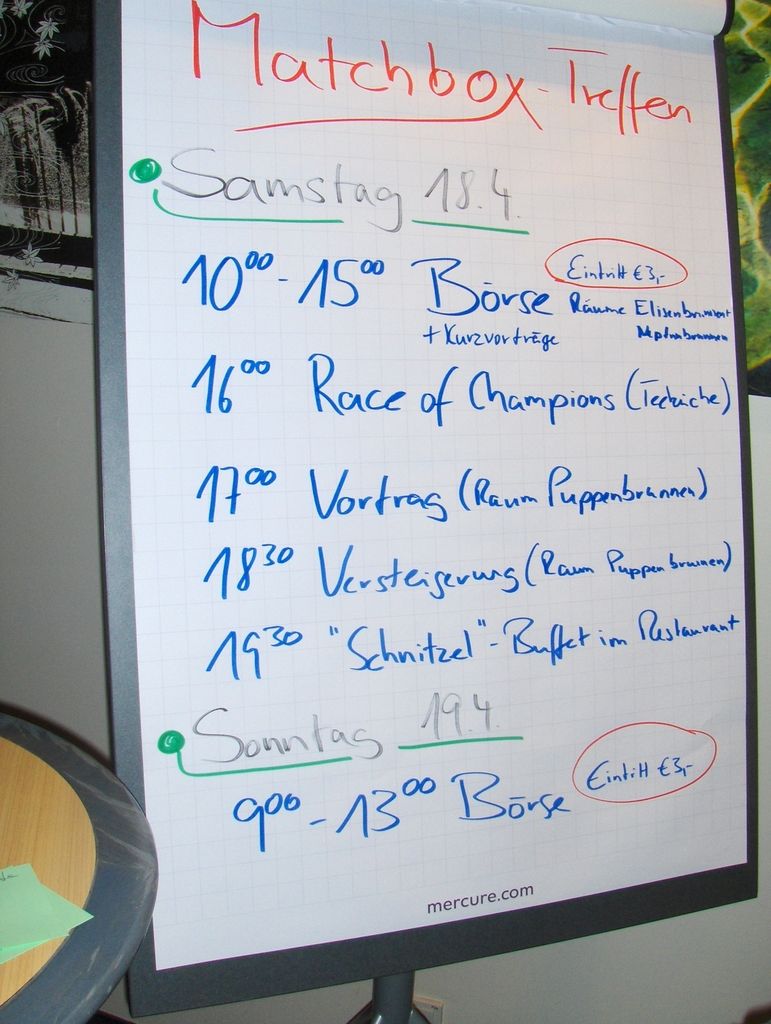 Matchbox-Treffen
Samstag 18.4.
10⁰⁰-15⁰⁰ Börse Eintritt €3,-
+ Kurzvorträge Räume Elisenbrunnen
Neptunbrunnen
16⁰⁰ Race of Champions (Teeküche)
17⁰⁰ Vortrag (Raum Puppenbrunnen)
18³⁰ Versteigerung (Raum Puppenbrunnen)
19³⁰ "Schnitzel"-Buffet im Restaurant
Sonntag 19.4.
9⁰⁰-13⁰⁰ Börse Eintritt €3,-
mercure.com